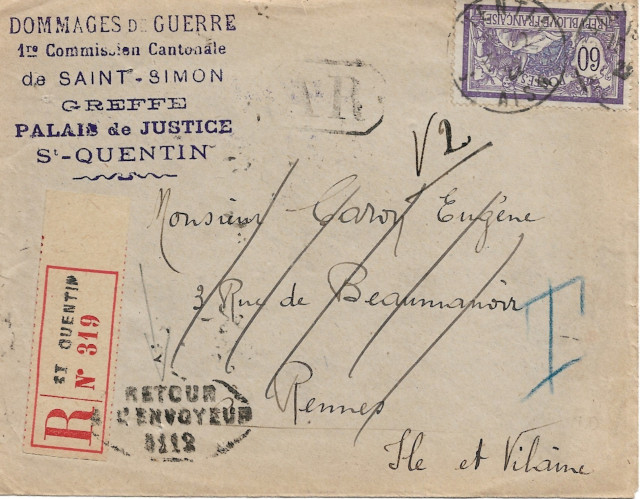 DOMMAGES DE GUERRE
1re Commission Cantonale
de SAINT-SIMON
GREFFE
PALAIS de JUSTICE
St-QUENTIN
AR
60
REPUBLIQUE FRANÇAISE
POSTES
V2
Monsieur Caron Eugène
3 Rue de Beaumanoir
Rennes
Ile et Vilaine
R
ST QUENTIN
N° 319
RETOUR
A L'ENVOYEUR
3112
I